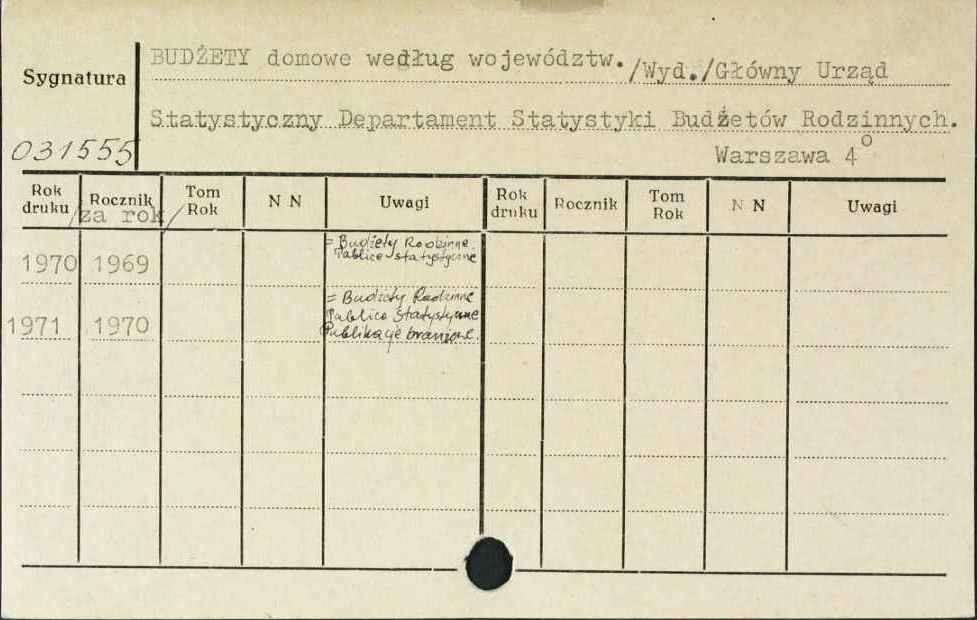 BUDŻETY domowe według województw./Wyd./Główny Urząd
Sygnatura
Statystyczny Departament Statystyki Budżetów Rodzinnych.
031555
Warszawa 4°
Rok druku Rocznik /za rok/ Tom Rok N N Uwagi Rok druku Rocznik Tom Rok N N Uwagi
1970 1969 = Budżety Rodzinne.
Tablice statystyczne
1971 1970 = Budżety Rodzinne
Tablice Statystyczne
Publikacje branżowe.